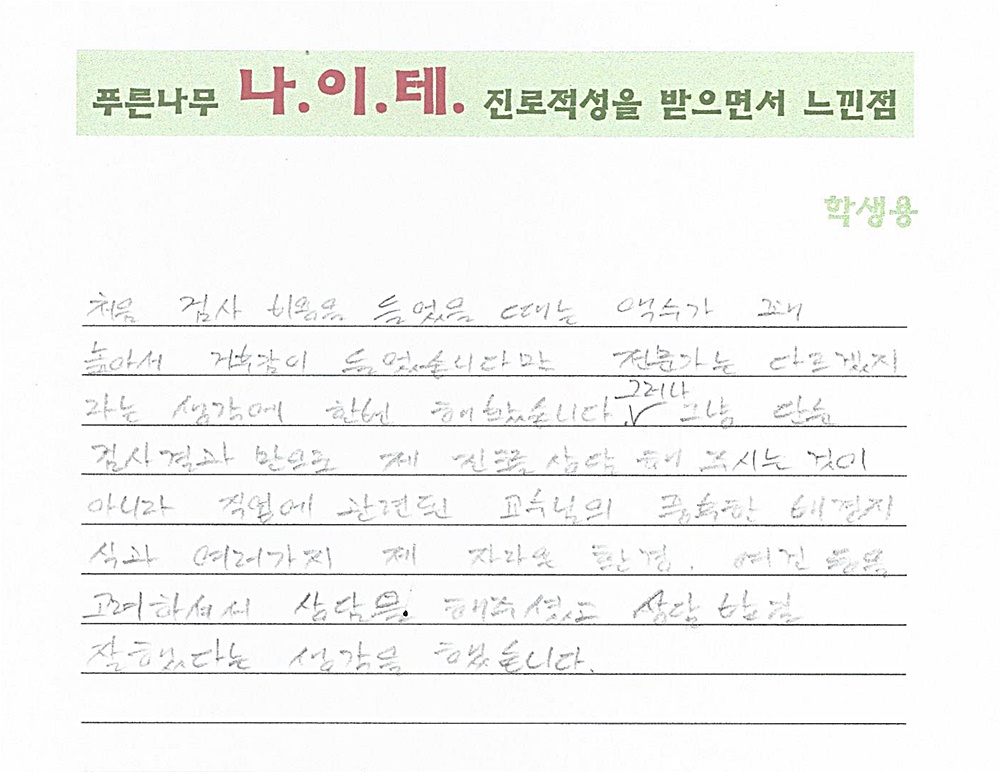 푸른나무 나.이.테. 진로적성을 받으면서 느낀점
학생용
처음 검사 비용을 들었을 때는 액수가 꽤
높아서 거부감이 들었습니다만 전문가는 다르겠지
라는 생각에 한번 해 봤습니다. 그러나 그냥 단순
검사결과 만으로 제 진로를 상담 해 주시는 것이
아니라 직업에 관련된 교수님의 풍족한 배경지
식과 여러가지 제 자라온 환경, 여건 등을
고려하셔서 상담을 해주셨고 상담 받길
잘했다는 생각을 했습니다.